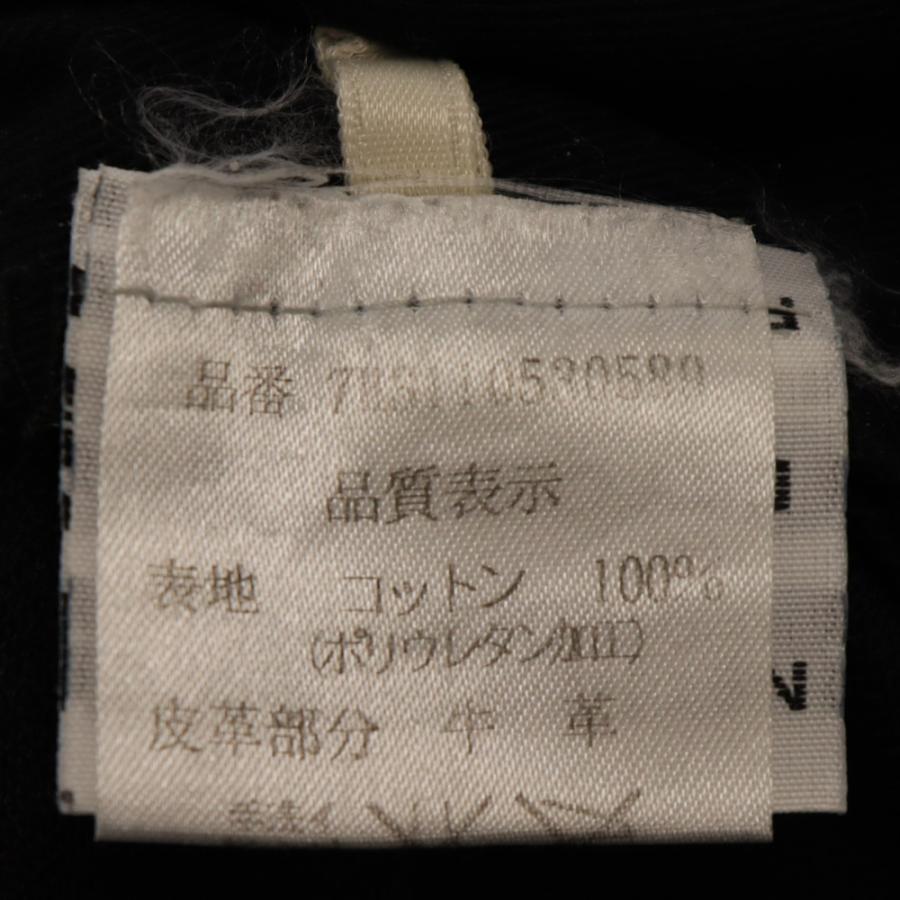 品番
品質表示
表地 コットン 100%
(ポリウレタン加工)
皮革部分 牛 革